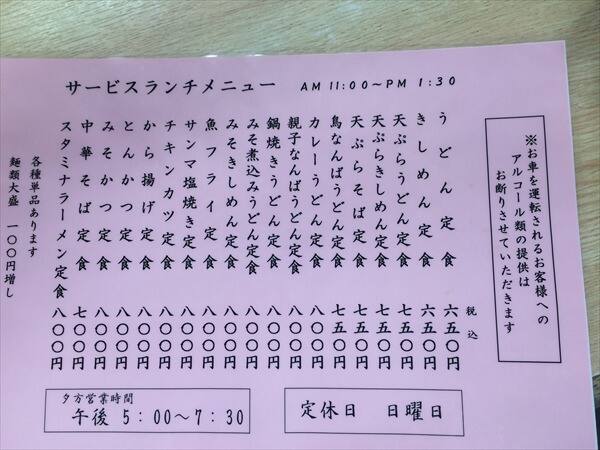 サービスランチメニュー AM 11:00～PM 1:30
※お車を運転されるお客様への
アルコール類の提供は
お断りさせていただきます
税込
うどん定食 六五〇円
きしめん定食 六五〇円
天ぷらうどん定食 七五〇円
天ぷらきしめん定食 七五〇円
天ぷらそば定食 七五〇円
鳥なんばうどん定食 七五〇円
カレーうどん定食 八〇〇円
親子なんばうどん定食 八〇〇円
鍋焼きうどん定食 八〇〇円
みそ煮込みうどん定食 八〇〇円
みそきしめん定食 八〇〇円
魚フライ定食 八〇〇円
サンマ塩焼き定食 八〇〇円
チキンカツ定食 八〇〇円
から揚げ定食 八〇〇円
とんかつ定食 八〇〇円
みそかつ定食 八〇〇円
中華そば定食 七〇〇円
スタミナラーメン定食 八〇〇円
各種単品あります
麺類大盛 一〇〇円増し
夕方営業時間
午後 5:00～7:30
定休日 日曜日